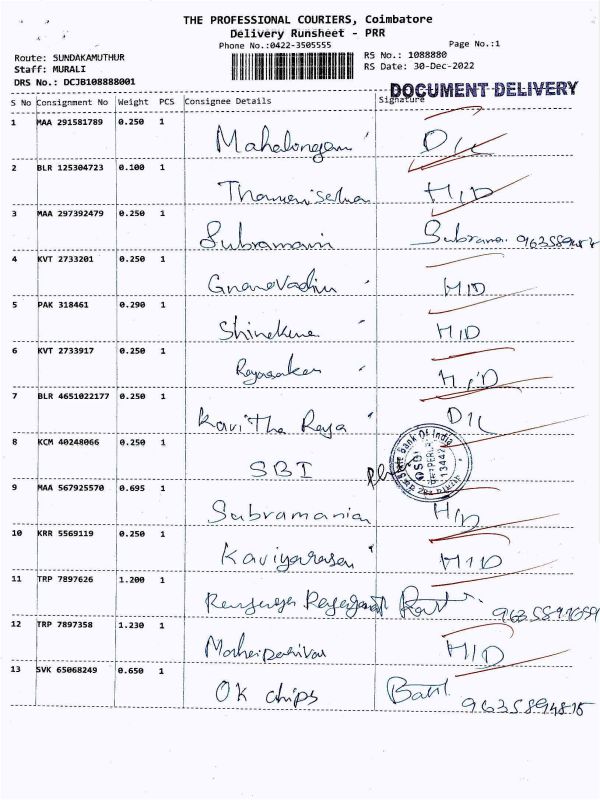 THE PROFESSIONAL COURIERS, Coimbatore
Delivery Runsheet - PRR
Phone No.:0422-3505555 Page No.:1
Route: SUNDAKAMUTHUR RS No.: 1088880
Staff: MURALI RS Date: 30-Dec-2022
DRS No.: DCJB108888001
DOCUMENT DELIVERY
S No Consignment No Weight PCS Consignee Details Signature
1 MAA 291581789 0.250 1 D/L
2 BLR 125304723 0.100 1 H/D
3 MAA 297392479 0.250 1 Subramani
4 KVT 2733201 0.250 1 H/D
5 PAK 318461 0.290 1 H/D
6 KVT 2733917 0.250 1 H/D
7 BLR 4651022177 0.250 1 Kavitha Raja D/L
8 KCM 40248066 0.250 1 SBI State Bank Of India
9 MAA 567925570 0.695 1 Subramanian H/D
10 KRR 5569119 0.250 1 Kaviyarasan H/D
11 TRP 7897626 1.200 1
12 TRP 7897358 1.230 1 H/D
13 SVK 65068249 0.650 1 OK chips 9635894815